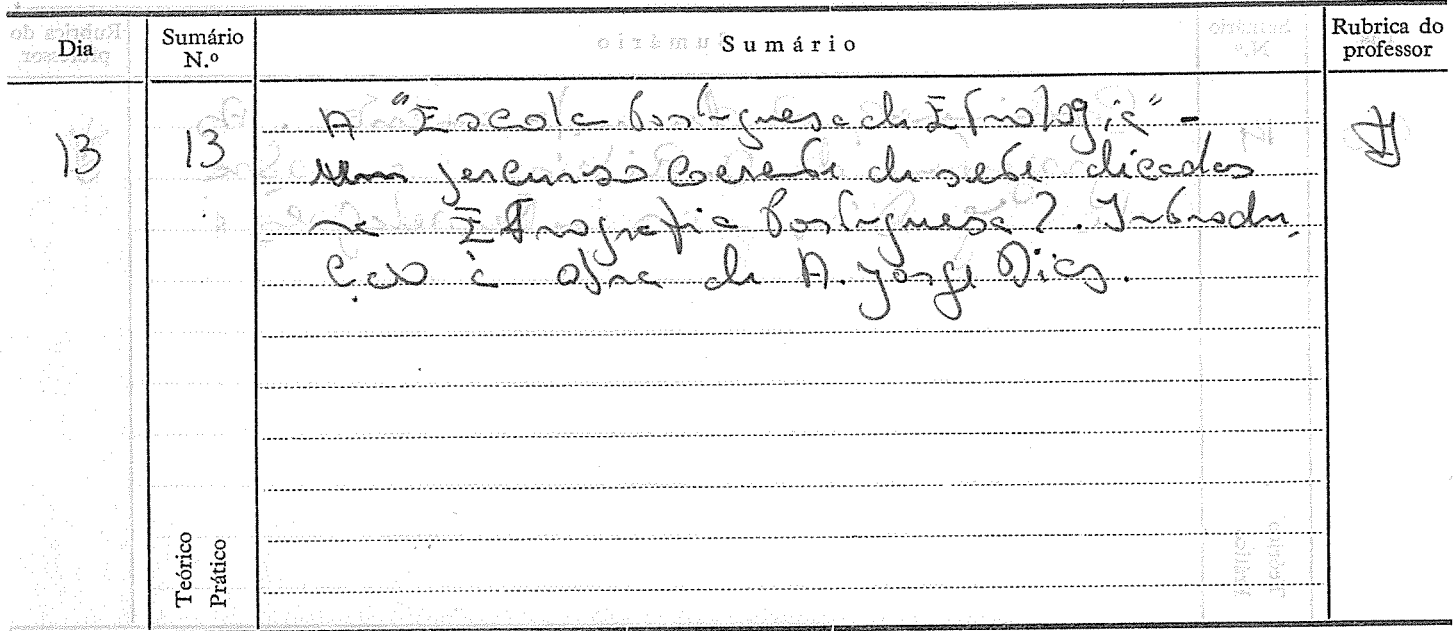 Dia
Sumário N.º
Sumário
Rubrica do professor
13
13
A "Escola Portuguesa de Etnologia" -
um percurso coerente de sete décadas
na Etnografia Portuguesa?. Introdu,
ção à obra de A. Jorge Dias.
Teórico
Prático